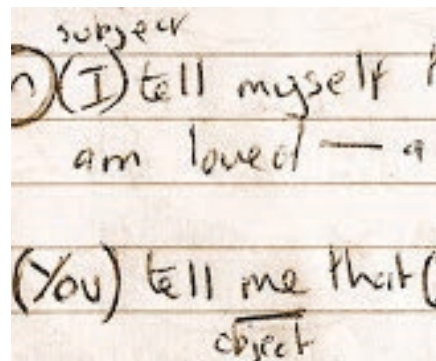 subject
(I) tell myself
am loved —
(You) tell me that (
object